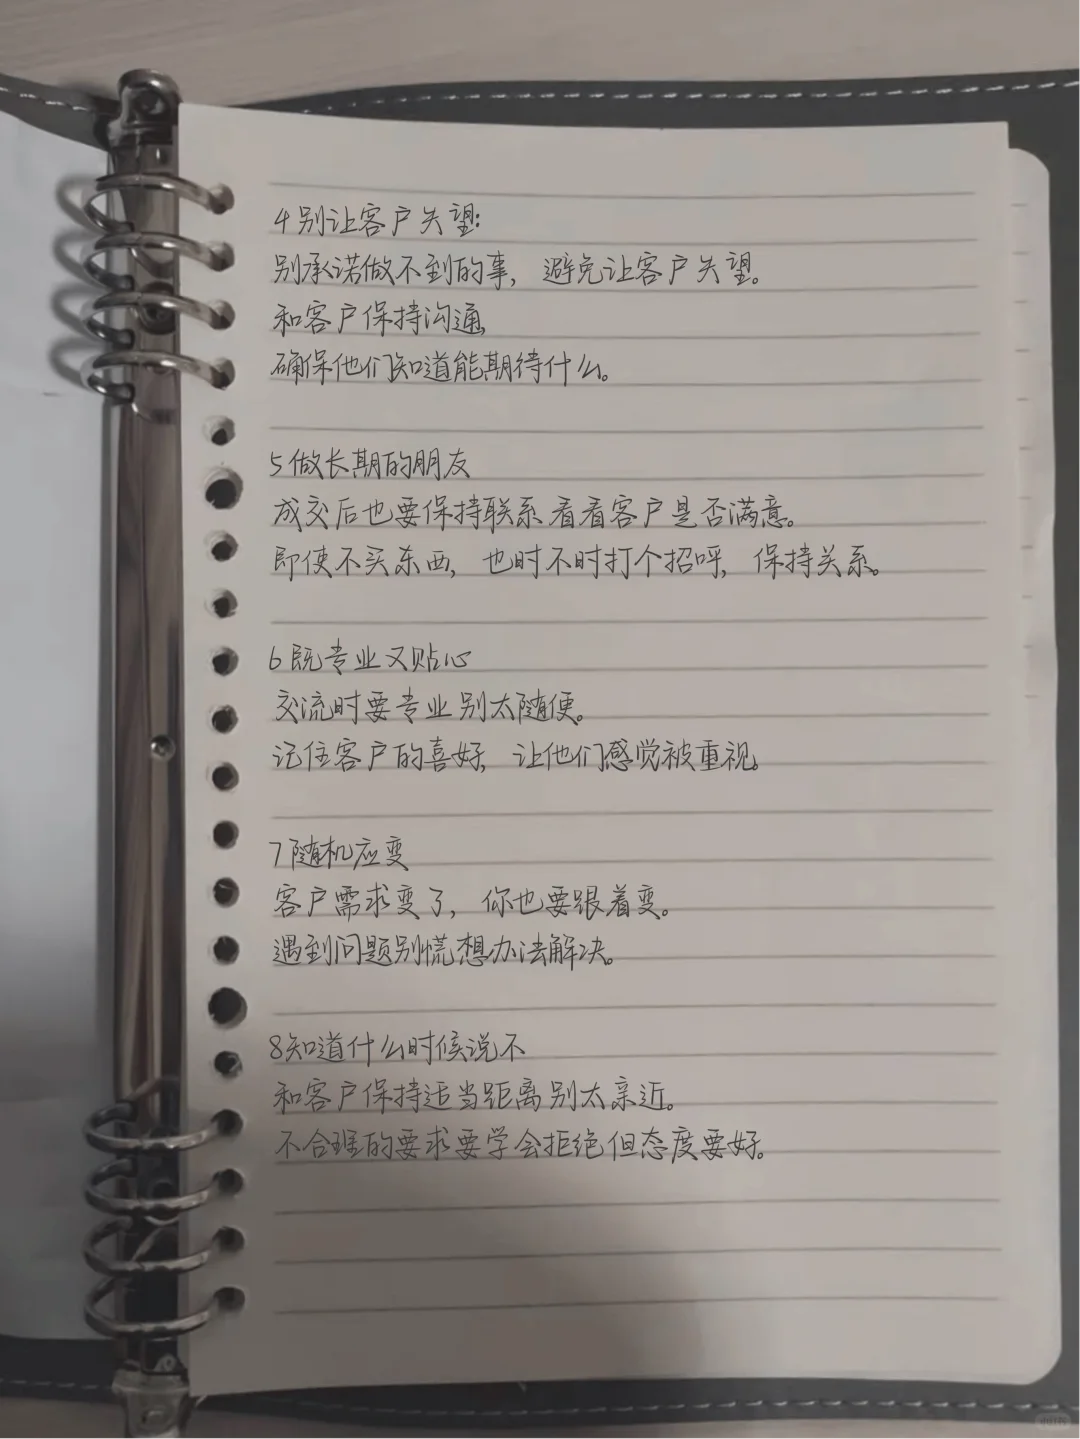 4别让客户失望:
别承诺做不到的事，避免让客户失望。
和客户保持沟通,
确保他们知道能期待什么。
5做长期的朋友
成交后也要保持联系看看客户是否满意。
即使不买东西，也时不时打个招呼，保持关系。
6既专业又贴心
交流时要专业别太随便。
记住客户的喜好，让他们感觉被重视。
7随机应变
客户需求变了，你也要跟着变。
遇到问题别慌想办法解决。
8知道什么时候说不
和客户保持适当距离别太亲近。
不合理的要求要学会拒绝但态度要好。